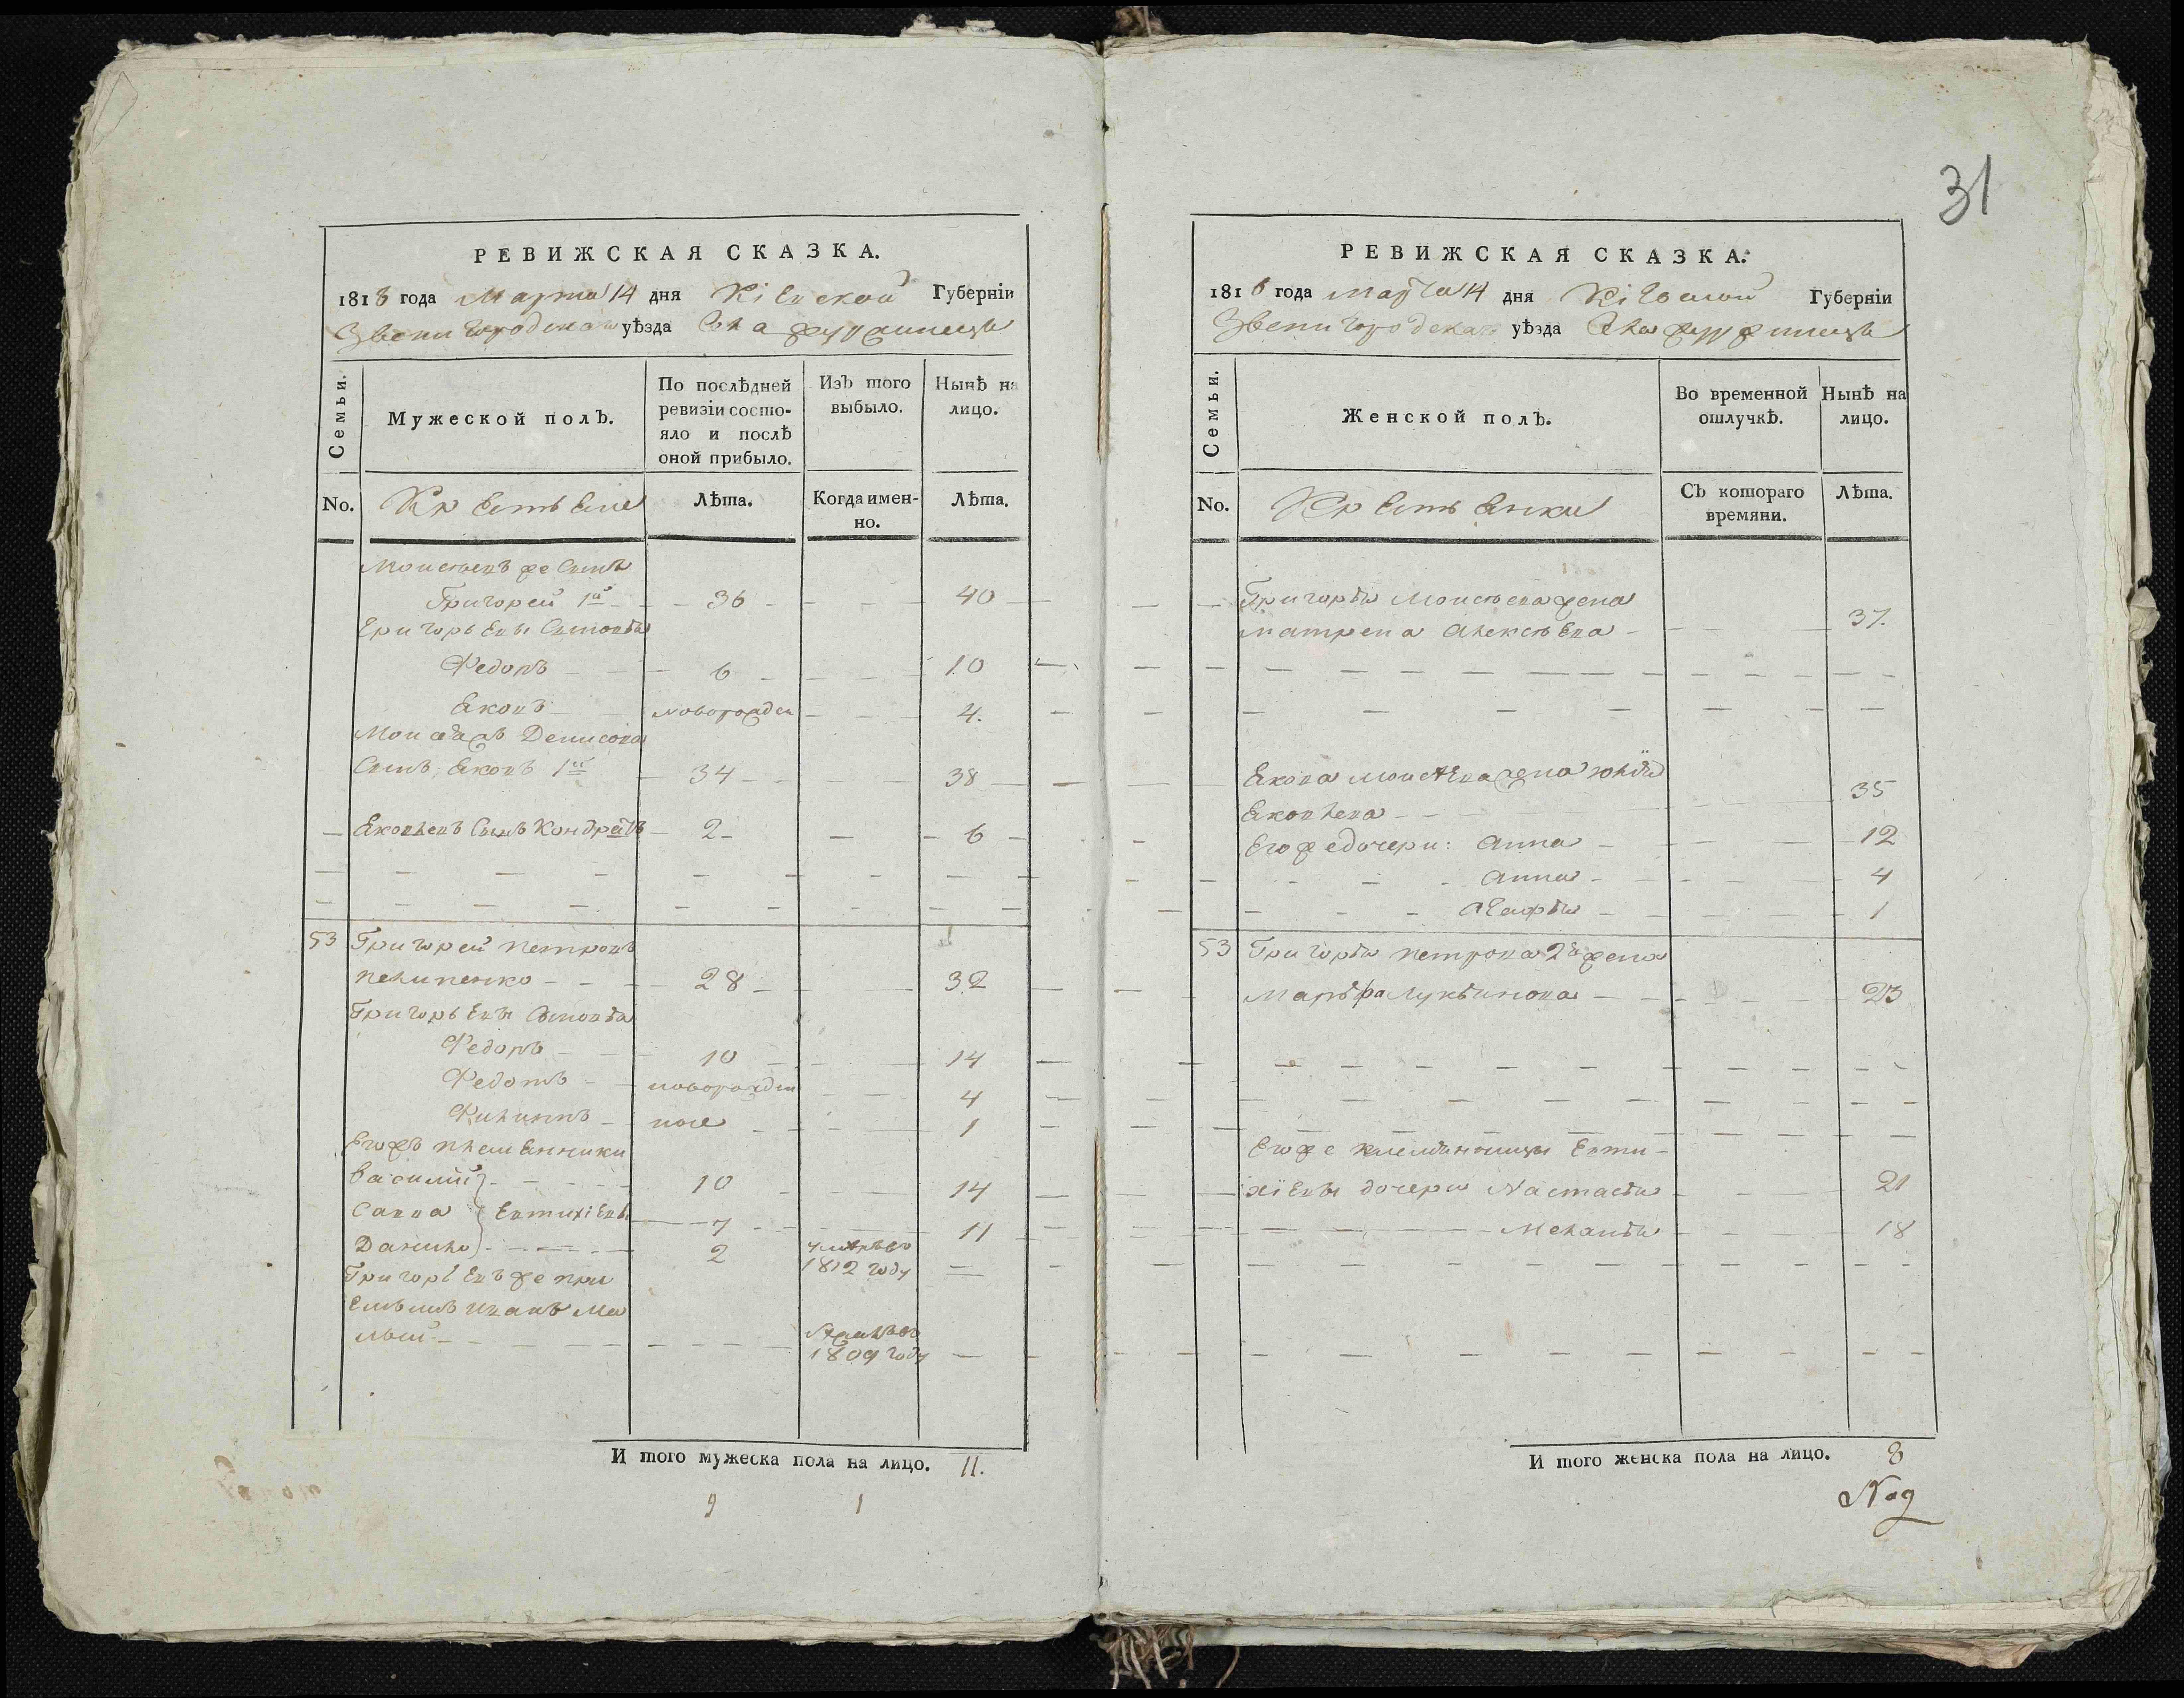 31
РЕВИЖСКАЯ СКАЗКА.
1818 года Марта 14 дня Кіевской Губерніи
Звенигородскаго уѣзда Села
Семьи.
Мужеской полъ.
По послѣдней ревизіи состояло и послѣ оной прибыло.
Изъ того выбыло.
Нынѣ на лицо.
No.
Лѣта.
Когда именно.
Лѣта.
Григорей 1й 36 40
Григорьевы Сыновья
Федоръ 6 10
Яковъ новорожден 4.
Денисова
Сынъ, Яковъ 1й 34 38
Яковлевъ Сынъ Кондратъ 2 6
53 Григорей Петровъ
Пелипенко 28 32
Григорьевы Сыновья
Федоръ 10 14
Федотъ новорожден 4
Филиппъ ные 1
Егожъ племянники
Василий 10 14
Савва Евтихіевы 7 11
Данило 2 умеръ въ 1812 году
Григорьевъ же прі
емышъ Иванъ Ма
лый 1809 году
И того мужеска пола на лицо. 11.
9 1
РЕВИЖСКАЯ СКАЗКА.
1816 года Марта 14 дня Кіевской Губерніи
Звенигородскаго уѣзда Села
Семьи.
Женской полъ.
Во временной отлучкѣ.
Нынѣ на лицо.
No.
Съ котораго времяни.
Лѣта.
Григорья Моисѣева жена
Матрена Алексѣева 37.
Якова Моисѣева жена Юлія
Яковлева 35
Его же дочери: Анна 12
Анна 4
Агафья 1
53 Григорья Петрова 2й жена
Марѳа Лукьянова 23
Его же племянницы Евти-
хіевы дочери Настасья 21
Меланья 18
И того женска пола на лицо. 8